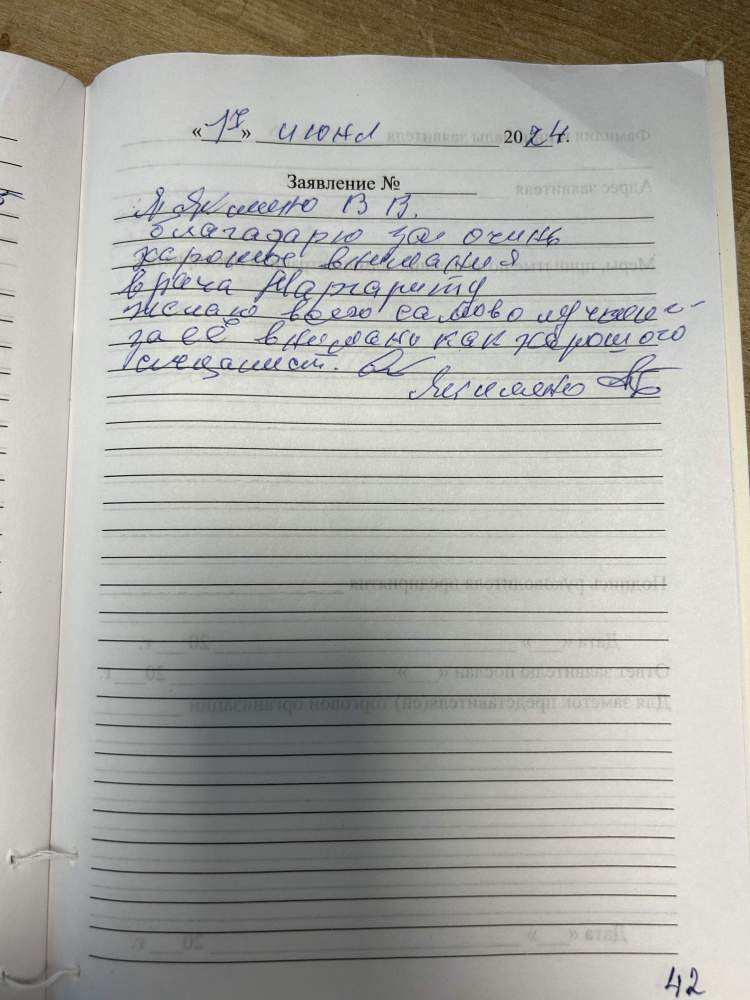 «17» июня 2024 г.
Заявление №
Я Якименко В В.
благадарю за очинь
харошое внимания
врача Маргариту
желаю всего самово лучшее
за её внимани как харошого
специалист.
Якименко
42